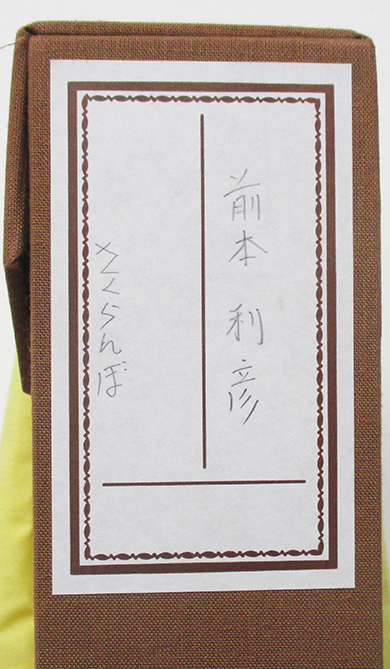 前本 利彦
さくらんぼ